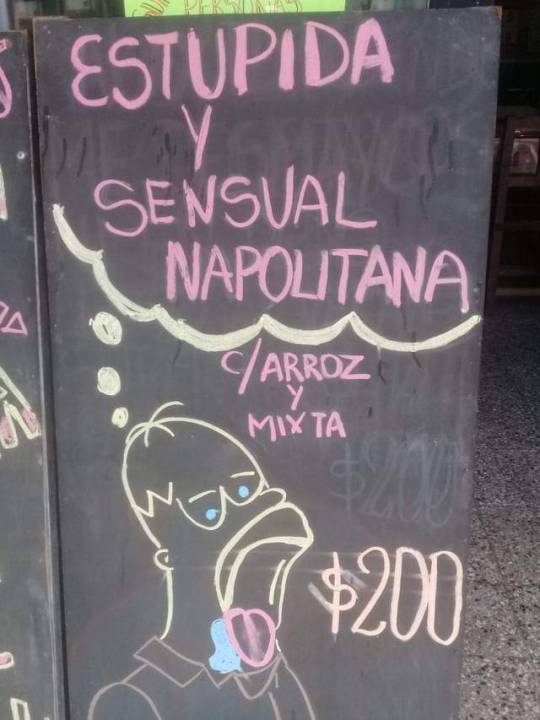 PERSONAS
ESTUPIDA
Y
SENSUAL
NAPOLITANA
C/ARROZ
Y
MIXTA
$200
$200